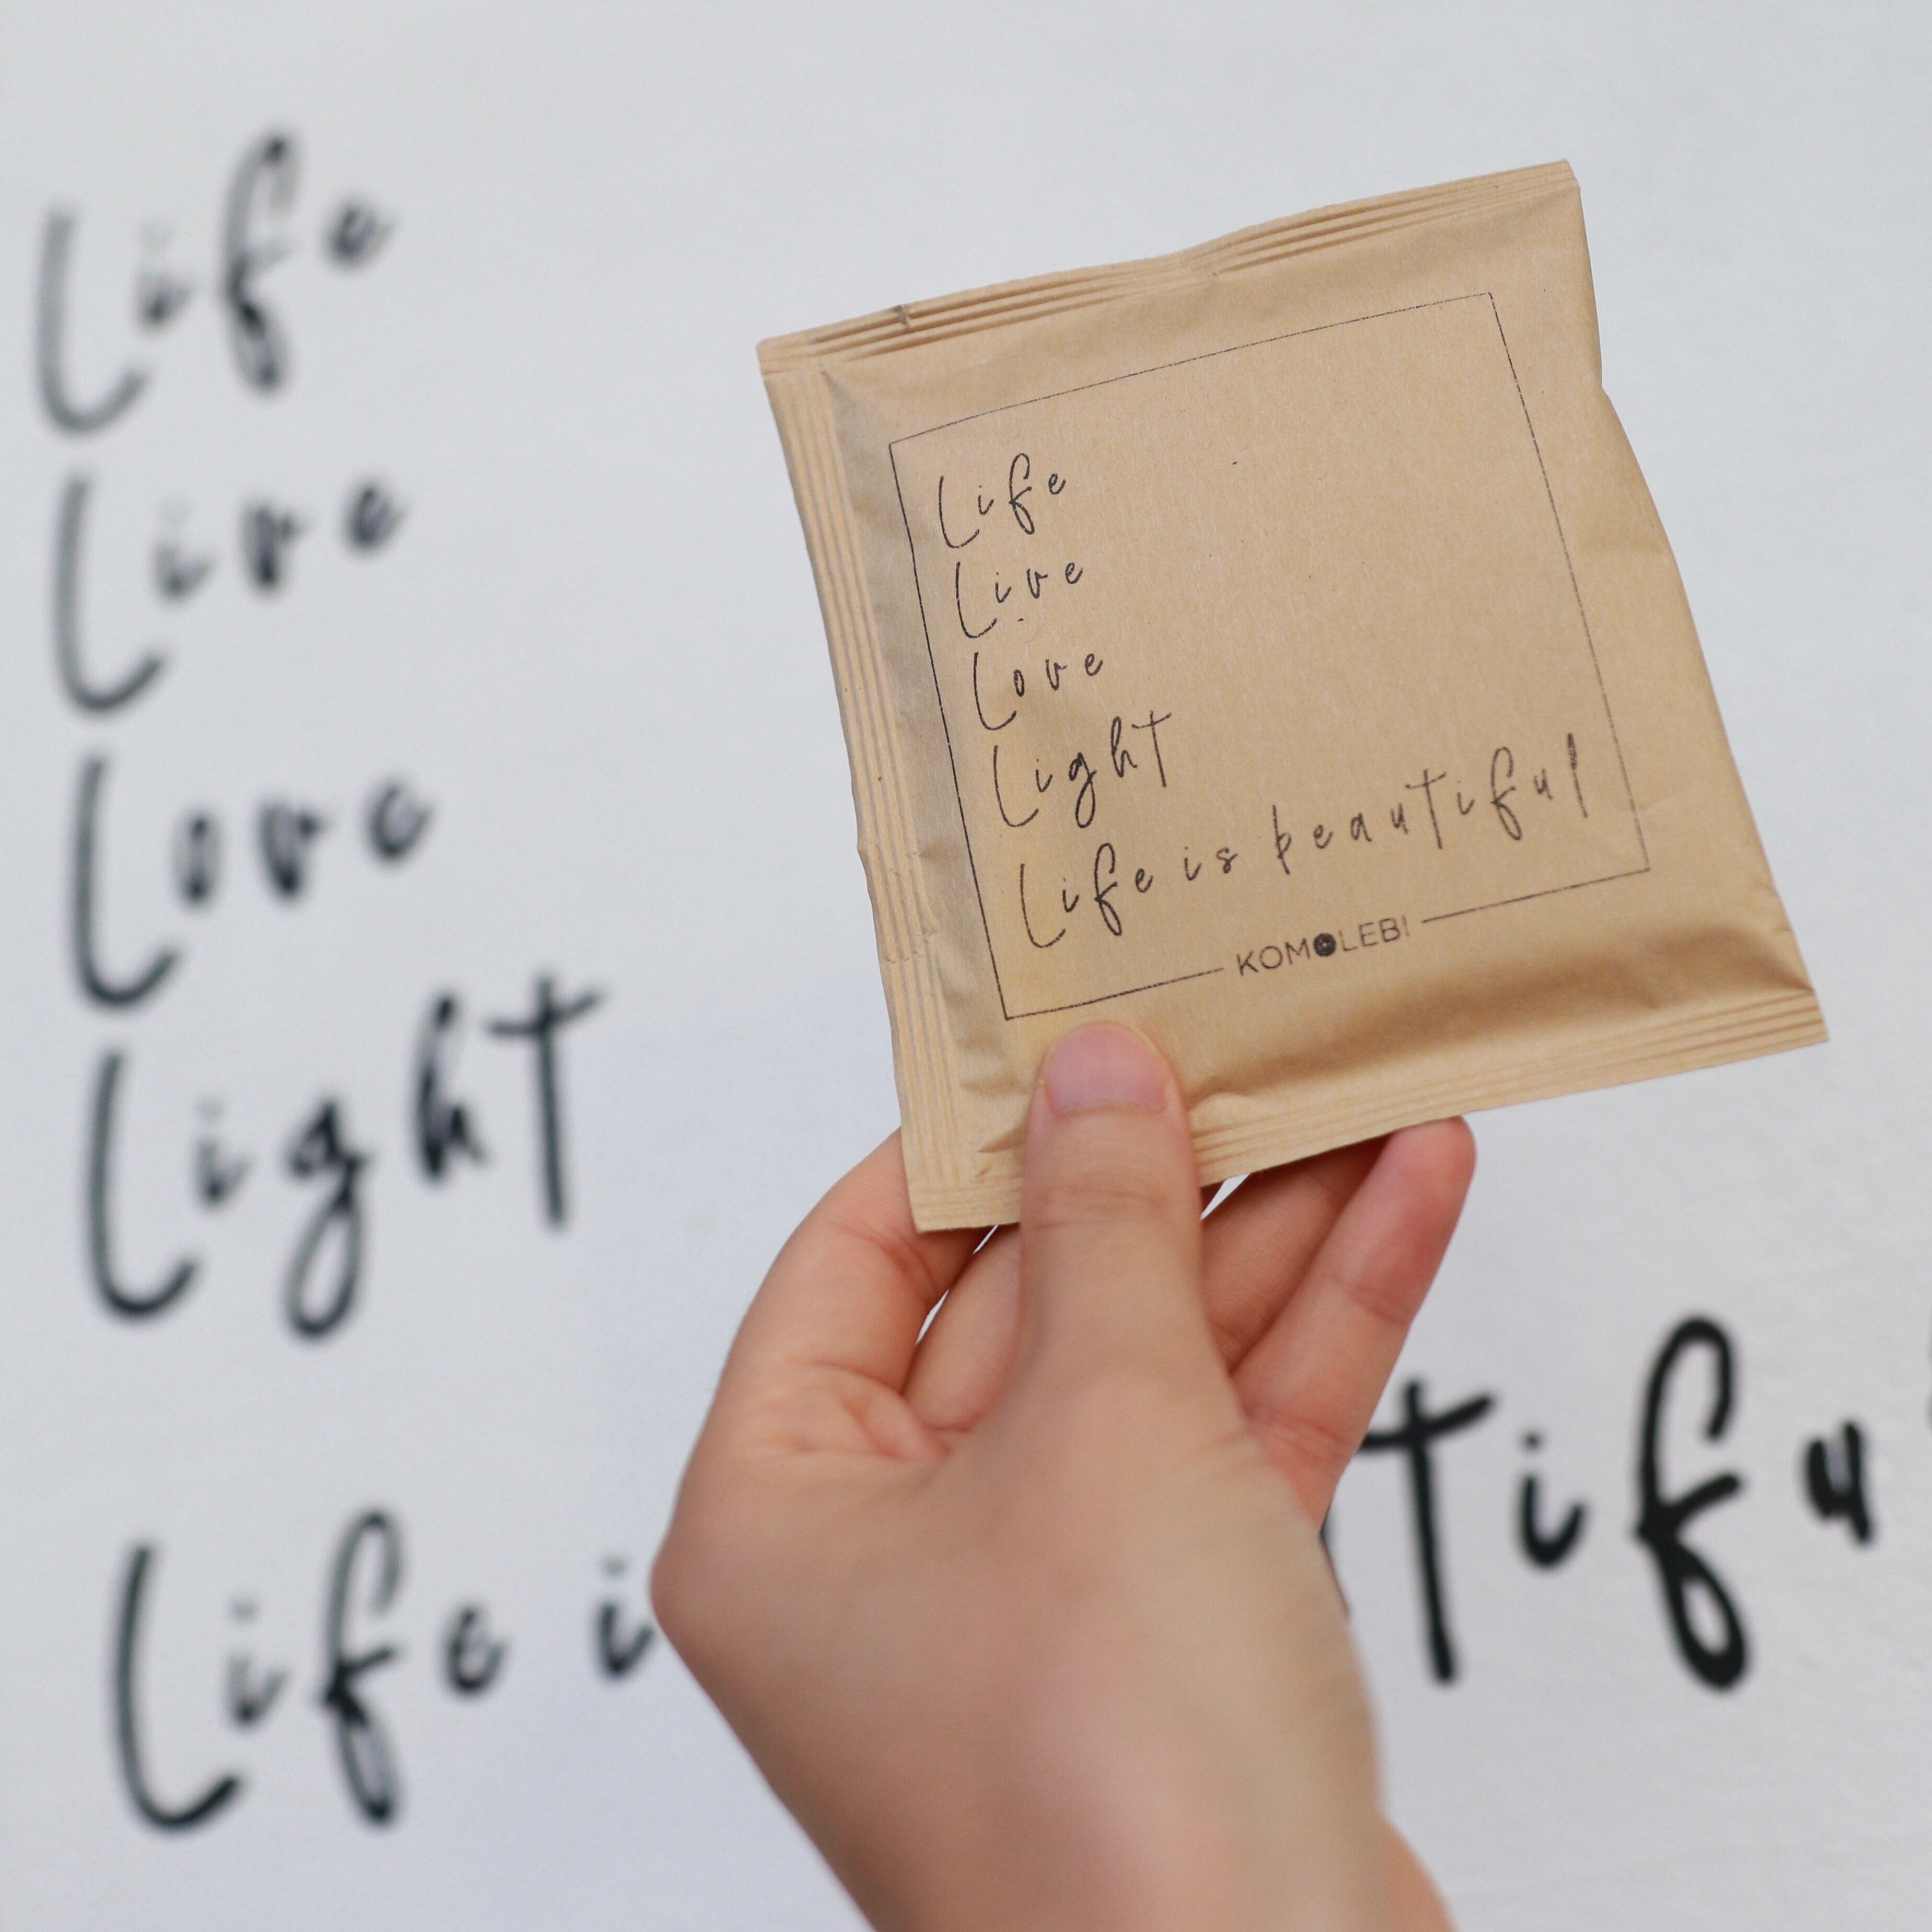 Life
Live
Love
Light
Life i
tifu
Life
Live
Love
Light
Life is beautiful
KOMOLEBI